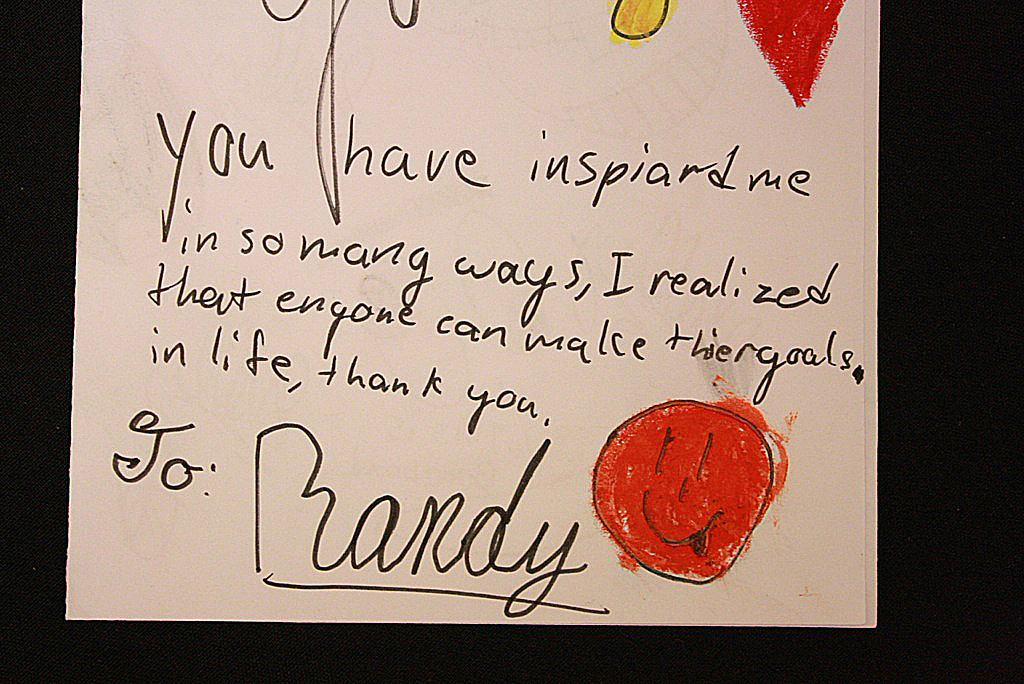 you have inspiard me
in so many ways, I realized
that enyone can make thier goals.
in life, thank you.
To: Randy